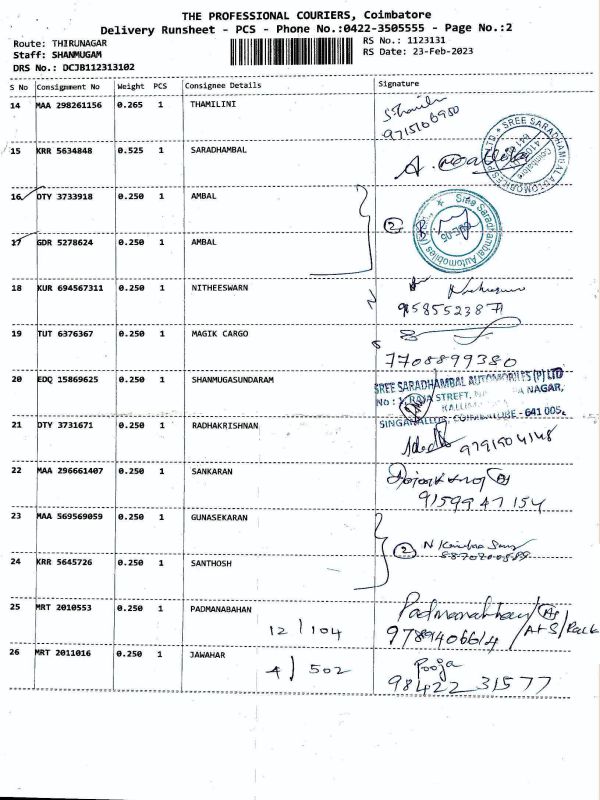 THE PROFESSIONAL COURIERS, Coimbatore
Delivery Runsheet - PCS - Phone No.:0422-3505555 - Page No.:2
Route: THIRUNAGAR
RS No.: 1123131
Staff: SHANMUGAM
RS Date: 23-Feb-2023
DRS No.: DCJB112313102
S No Consignment No Weight PCS Consignee Details Signature
14 MAA 298261156 0.265 1 THAMILINI
9715106950
15 KRR 5634848 0.525 1 SARADHAMBAL
16 DTY 3733918 0.250 1 AMBAL
2
Sree Saradhambal Automobiles
17 GDR 5278624 0.250 1 AMBAL
18 KUR 694567311 0.250 1 NITHEESWARN
19 TUT 6376367 0.250 1 MAGIK CARGO
7708899380
20 EDQ 15869625 0.250 1 SHANMUGASUNDARAM
SREE SARADHAMBAL AUTOMOBILES (P) LTD
STREET, NAGAR,
SINGANALLUR, COIMBATORE - 641 005.
21 DTY 3731671 0.250 1 RADHAKRISHNAN
9791904148
22 MAA 296661407 0.250 1 SANKARAN
9159947154
23 MAA 569569059 0.250 1 GUNASEKARAN
2
24 KRR 5645726 0.250 1 SANTHOSH
25 MRT 2010553 0.250 1 PADMANABAHAN
12 / 104
Padmanabhan
9789406614
26 MRT 2011016 0.250 1 JAWAHAR
4 / 502
Pooja
98422 31577